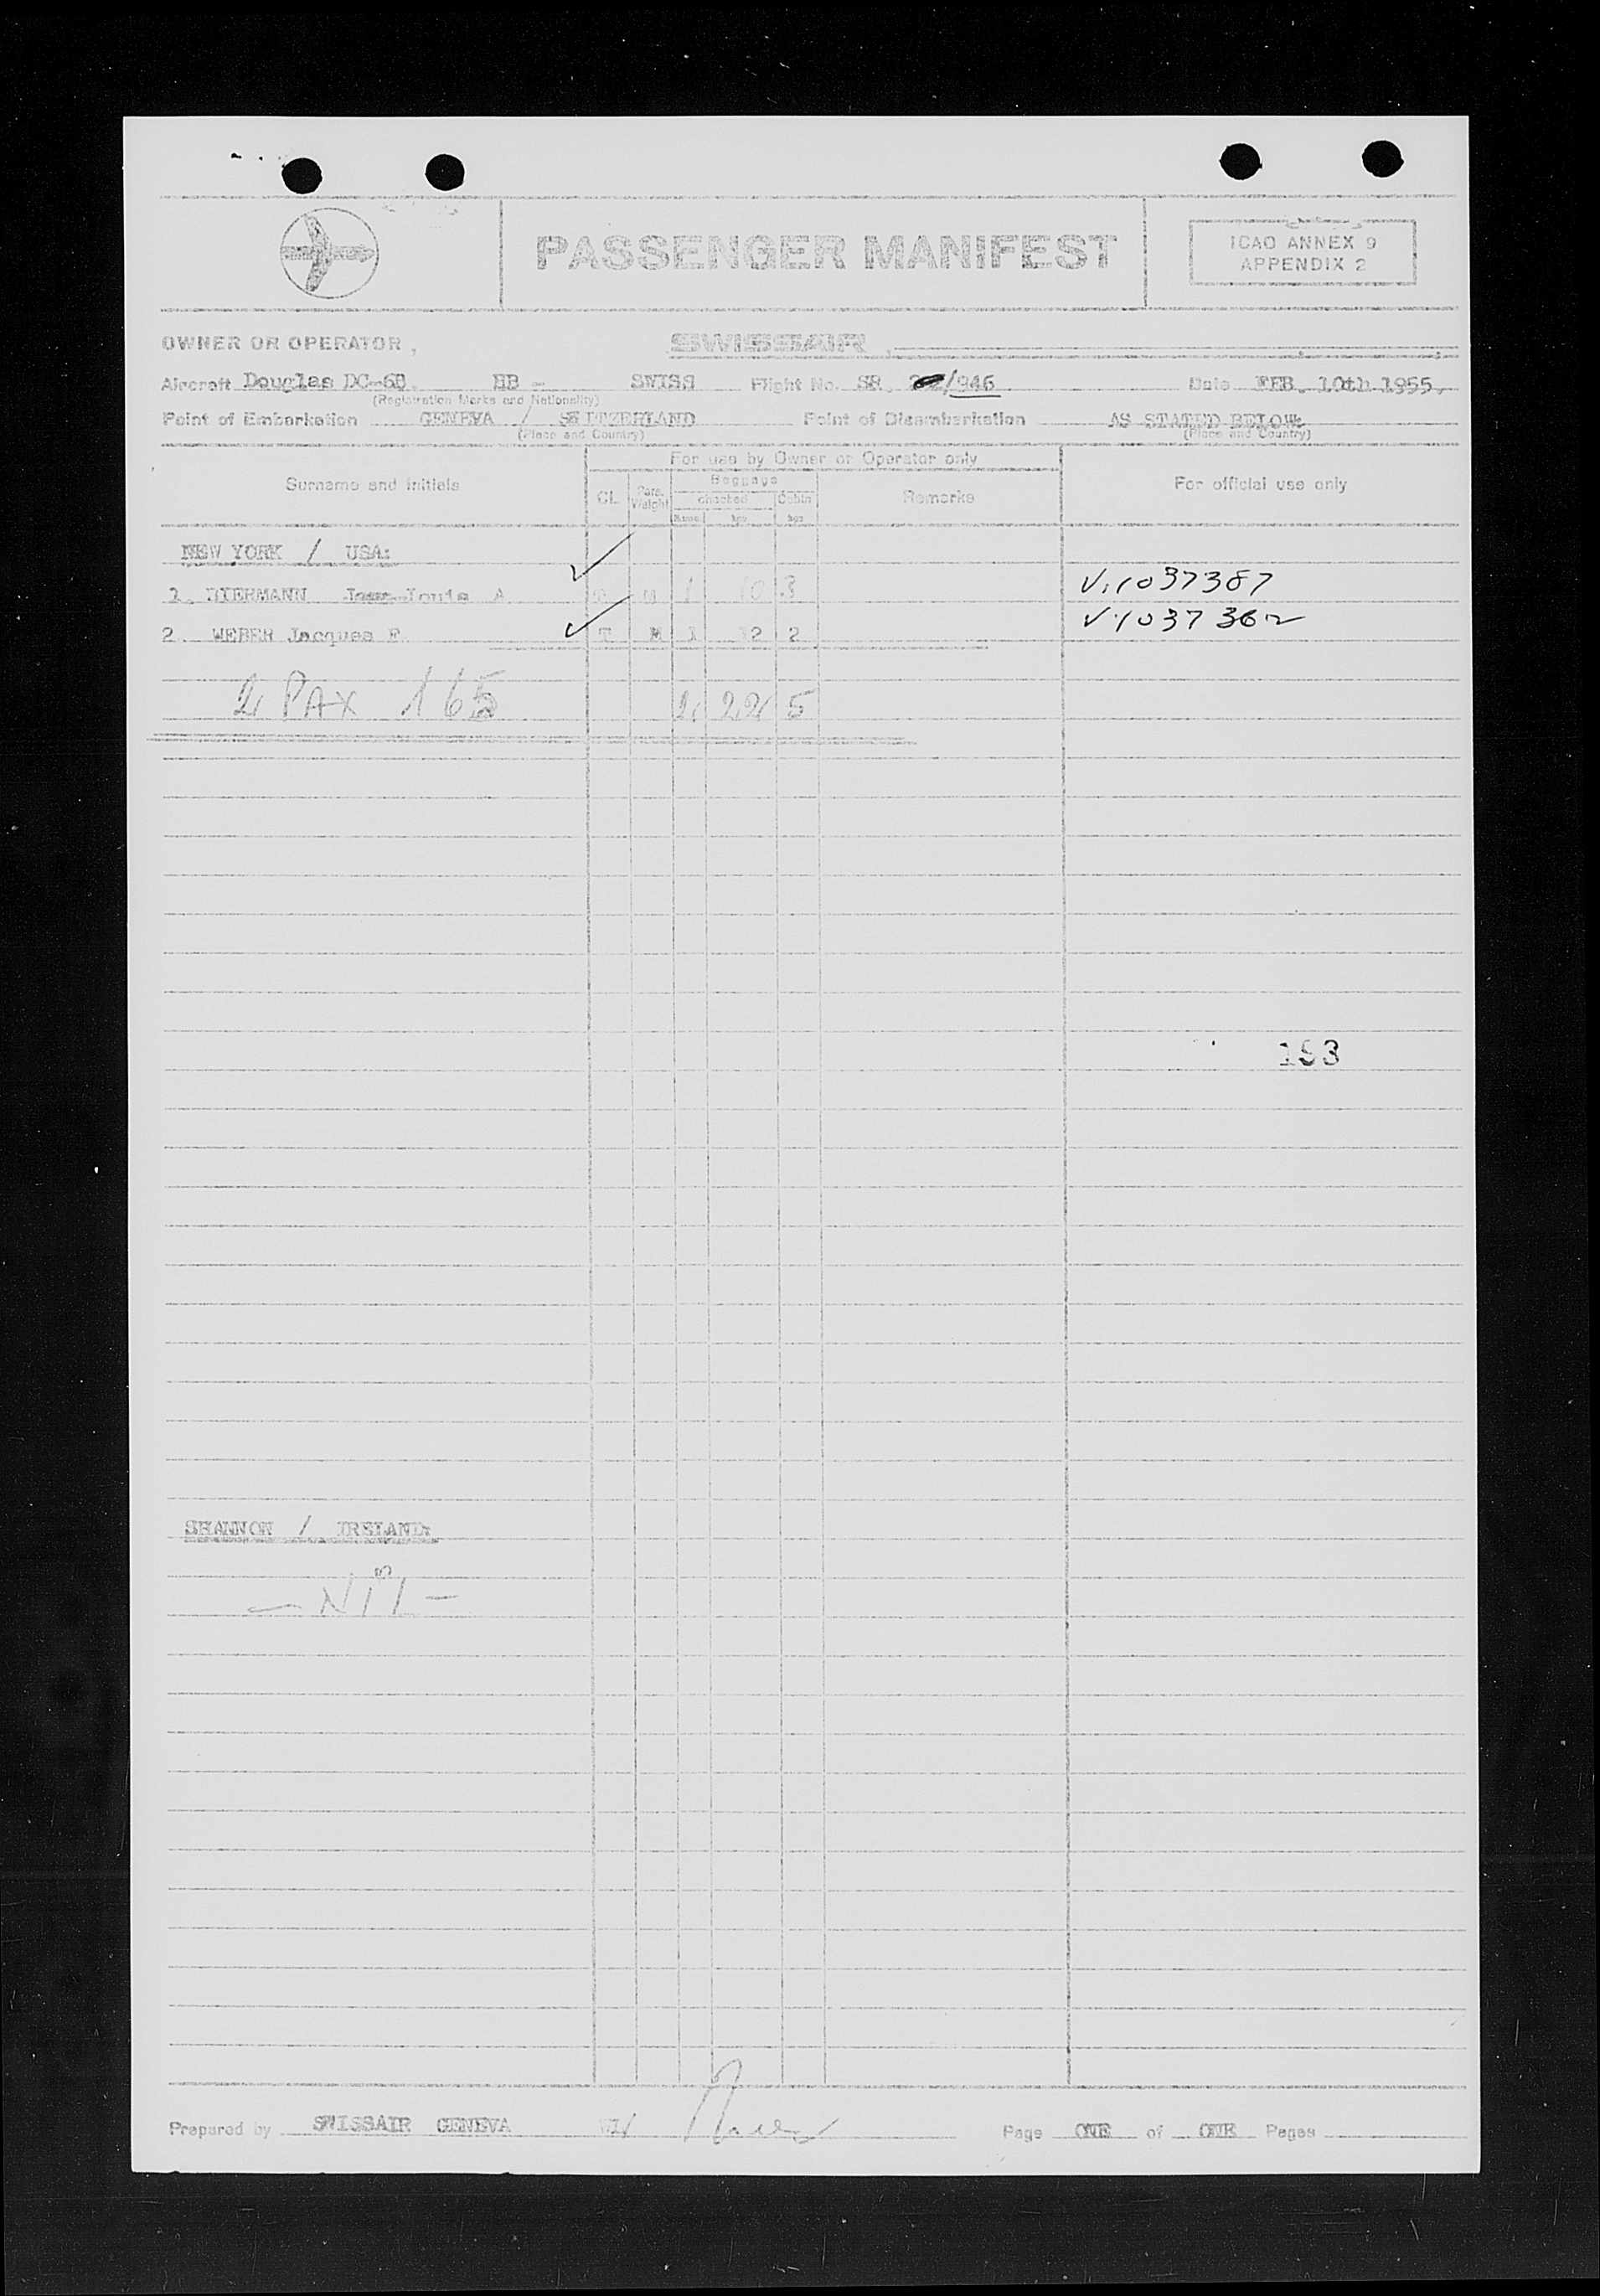 PASSENGER MANIFEST
ICAO ANNEX 9
APPENDIX 2
OWNER OR OPERATOR SWISSAIR
Aircraft Douglas DC-6B HB - SWISS Flight No. SR /846 Date FEB. 10th 1955.
(Registration Marks and Nationality)
Point of Embarkation GENEVA / SWITZERLAND Point of Disembarkation AS STATED BELOW
(Place and Country) (Place and Country)
For use by Owner or Operator only
Surname and initials CL Pass. Weight Baggage Remarks For official use only
checked Cabin
kgs kgs
NEW YORK / USA:
1. Jean-Louis A 1 10 3 V.1037387
2. WEBER Jacques F. T M 1 12 2 V.1037362
2 PAX 165 2 22 5
153
SHANNON / IRELAND:
- Nil -
Prepared by SWISSAIR GENEVA Page ONE of ONE Pages